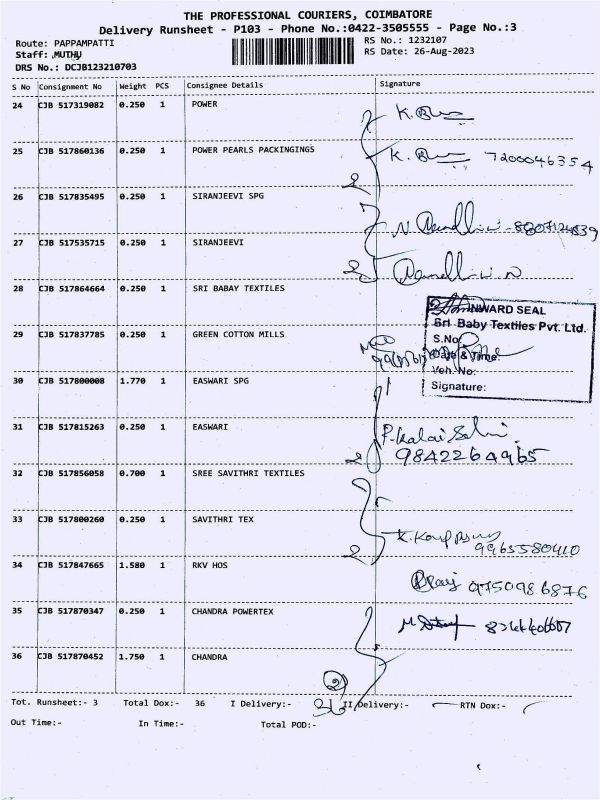 THE PROFESSIONAL COURIERS, COIMBATORE
Delivery Runsheet - P103 - Phone No.:0422-3505555 - Page No.:3
Route: PAPPAMPATTI
RS No.: 1232107
Staff: MUTHU
RS Date: 26-Aug-2023
DRS No.: DCJB123210703
S No Consignment No Weight PCS Consignee Details Signature
24 CJB 517319082 0.250 1 POWER
25 CJB 517860136 0.250 1 POWER PEARLS PACKINGINGS 7200046354
26 CJB 517835495 0.250 1 SIRANJEEVI SPG
27 CJB 517535715 0.250 1 SIRANJEEVI
28 CJB 517864664 0.250 1 SRI BABAY TEXTILES
INWARD SEAL
Sri Baby Textiles Pvt. Ltd.
S.No
Date & Time:
Veh. No:
Signature:
29 CJB 517837785 0.250 1 GREEN COTTON MILLS
30 CJB 517800008 1.770 1 EASWARI SPG
31 CJB 517815263 0.250 1 EASWARI
9842264965
32 CJB 517856058 0.700 1 SREE SAVITHRI TEXTILES
33 CJB 517800260 0.250 1 SAVITHRI TEX
9965580410
34 CJB 517847665 1.580 1 RKV HOS 9750986876
35 CJB 517870347 0.250 1 CHANDRA POWERTEX
36 CJB 517870452 1.750 1 CHANDRA
Tot. Runsheet:- 3 Total Dox:- 36 I Delivery:- II Delivery:- RTN Dox:-
Out Time:- In Time:- Total POD:-